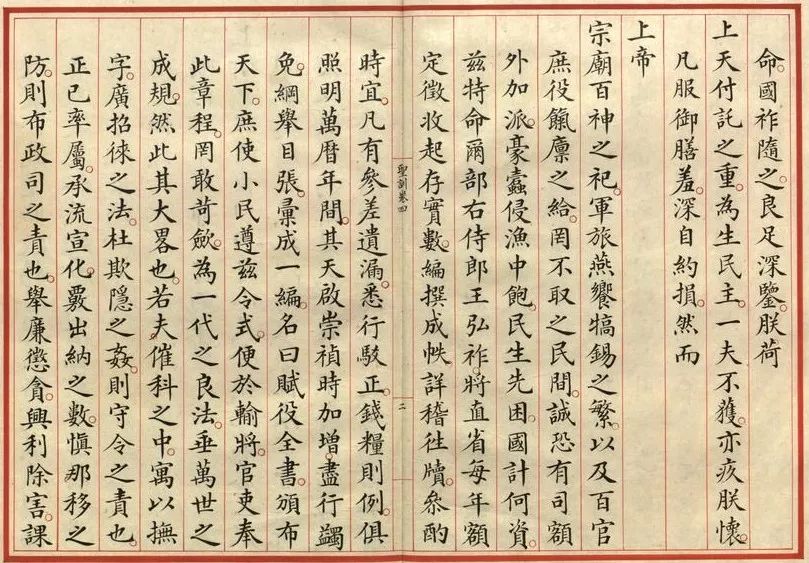 命國祚隨之良足深鑒朕荷
上天付託之重為生民主一夫不獲亦疚朕懷
凡服御膳羞深自約損然而
上帝
宗廟百神之祀軍旅燕饗犒錫之繁以及百官
庶役餼廩之給罔不取之民間誠恐有司額
外加派豪蠹侵漁中飽民生先困國計何資
兹特命爾部右侍郎王弘祚將直省每年額
定徵收起存實數編撰成帙詳稽徃牘叅酌
聖訓卷四
二
時宜凡有參差遺漏悉行駁正錢糧則例俱
照明萬曆年間其天啟崇禎時加增盡行蠲
免綱舉目張彙成一編名曰賦役全書頒布
天下庶使小民遵兹令式便於輸將官吏奉
此章程罔敢苛歛為一代之良法垂萬世之
成規然此其大畧也若夫催科之中寓以撫
字廣招徠之法杜欺隱之姦則守令之責也
正己率屬承流宣化覈出納之數慎那移之
防則布政司之責也舉廉懲貪興利除害課